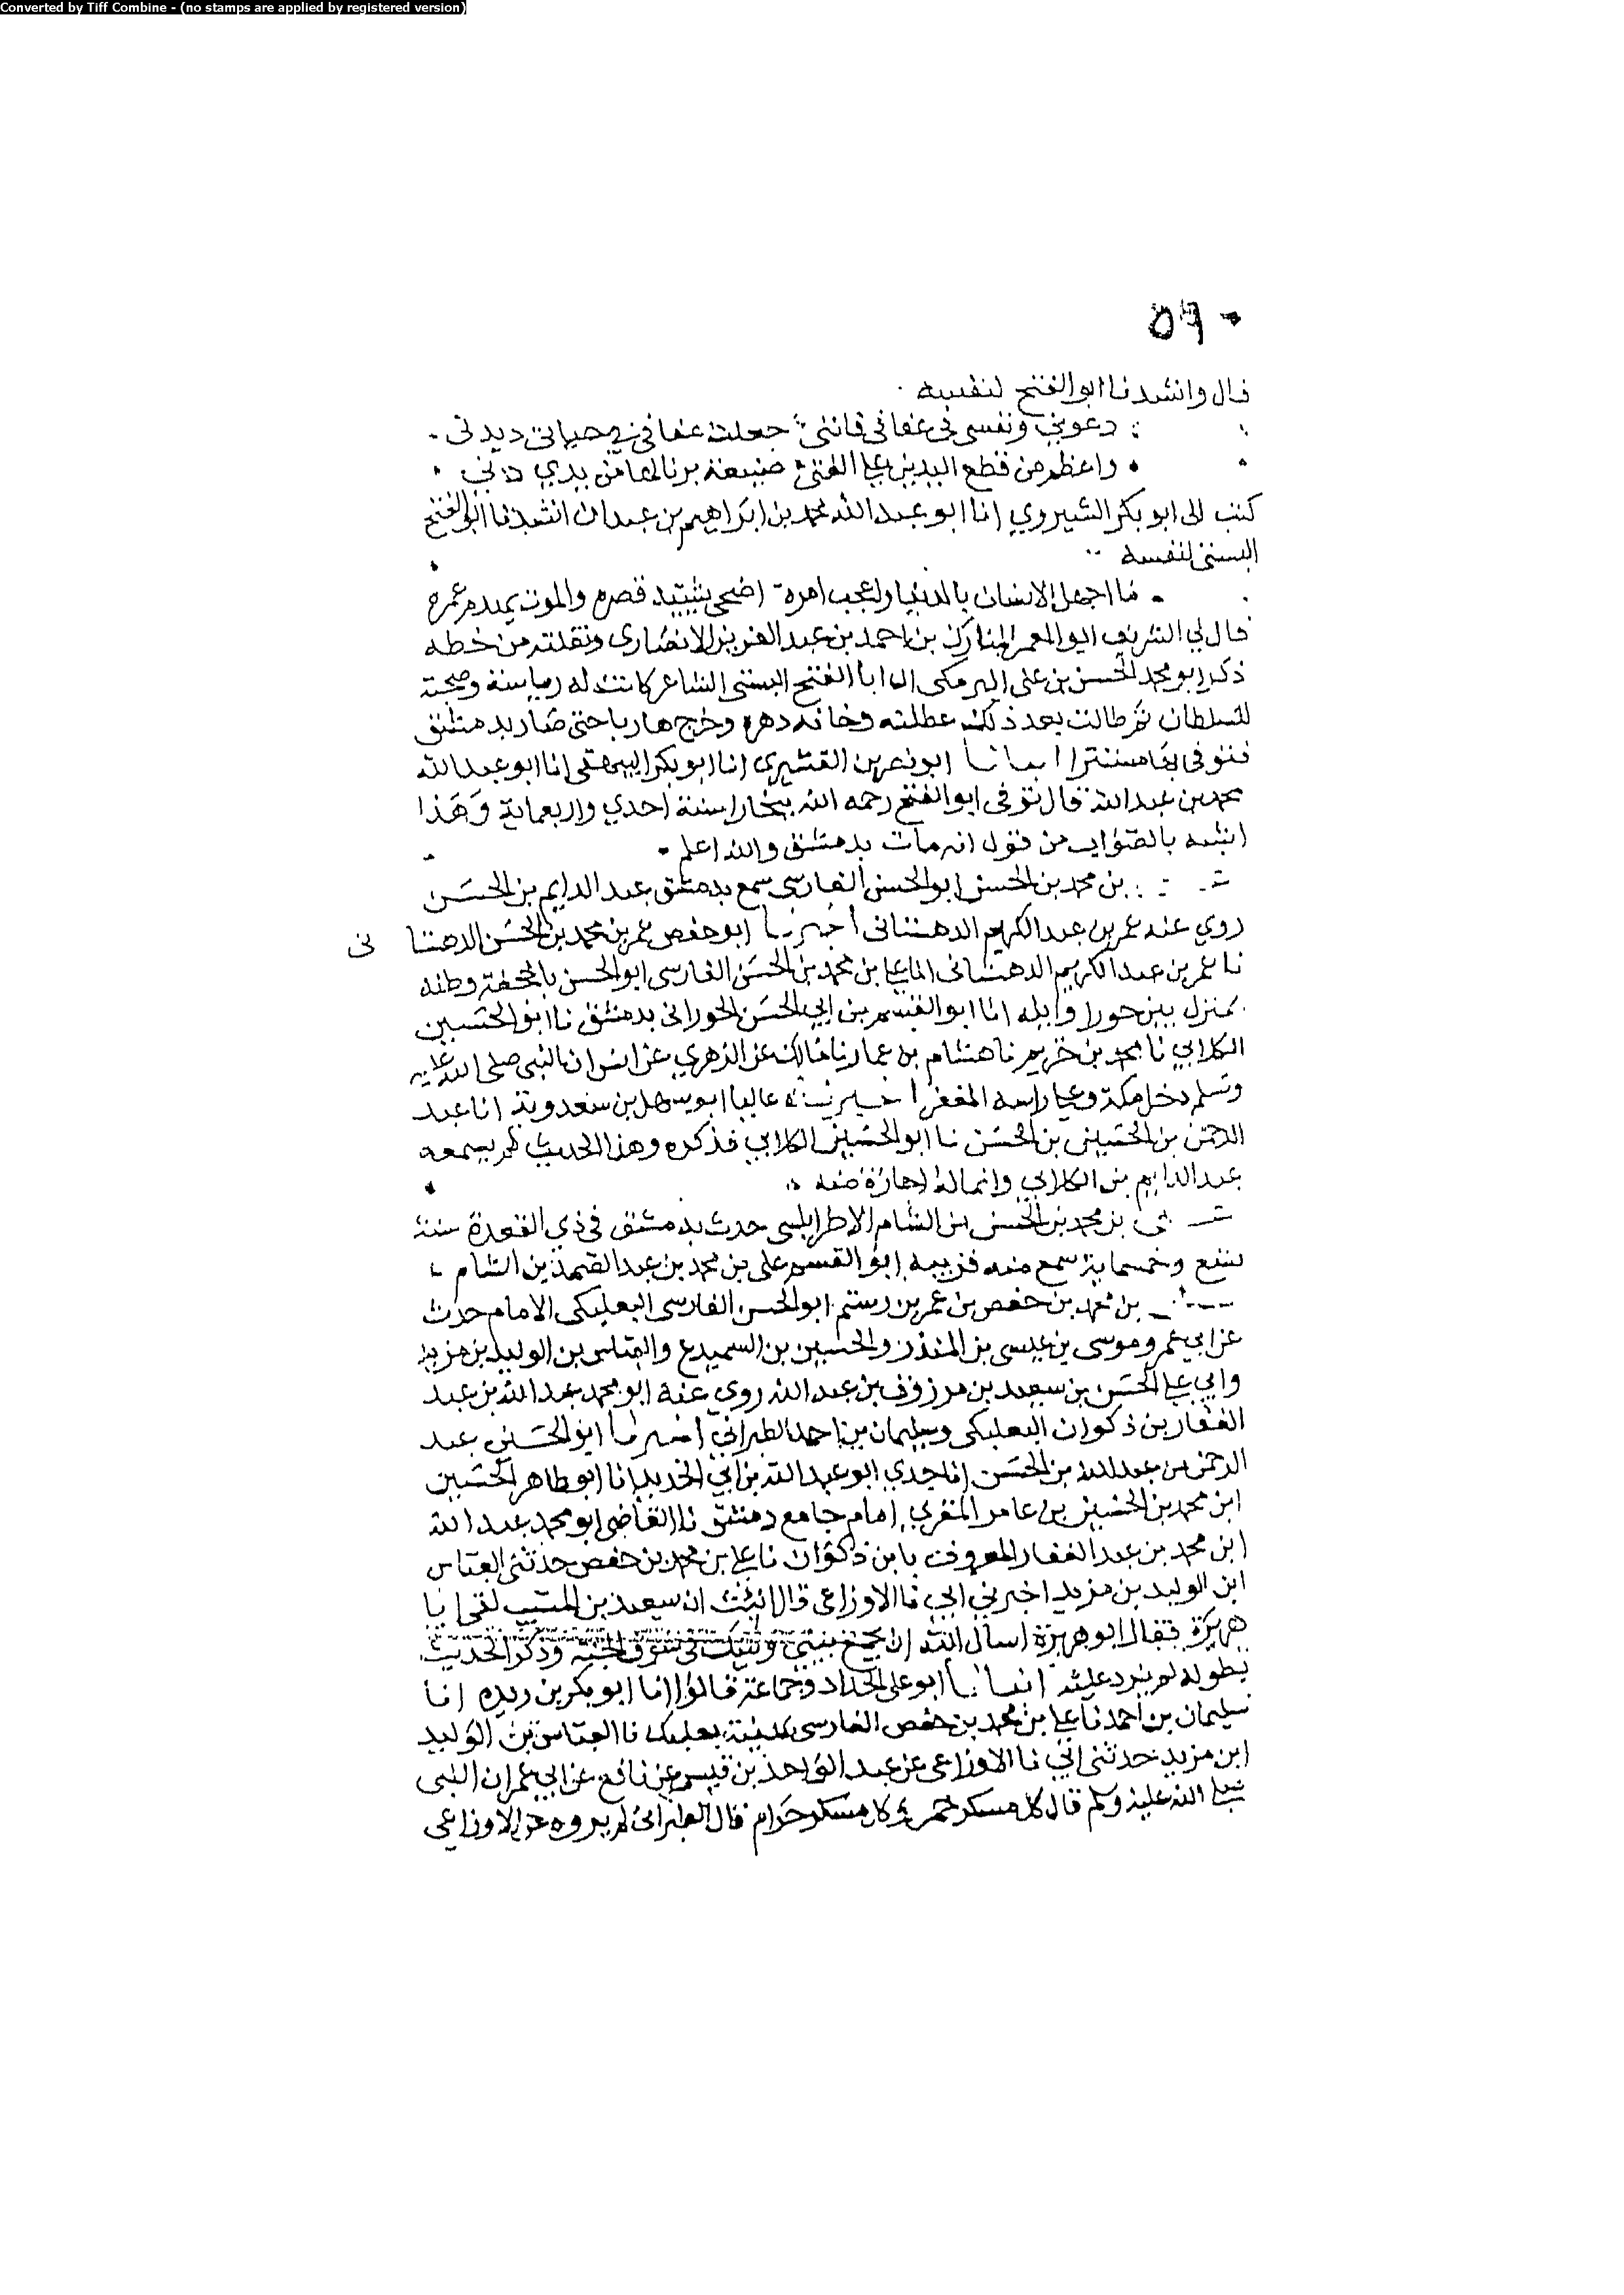 Converted by Tiff Combine - (no stamps are applied by registered version)
٥٩٠
قال وانشدنا ابو الفتح لنفسه
دعوني ونفسي في عفافي فانني جعلت عفافي في حياتي ديدني
واعظم من قطع اليدين على الفتى صنيعة بر نالها من يدي دني
كتب الى ابو بكر الشيروي انا ابو عبد الله محمد بن ابراهيم بن عبدان انشدنا ابو الفتح
البستي لنفسه
ما اجهل الانسان بالدنيا واعجب امره اضحى يشيد قصره والموت يهدم عمره
قال لي الشريف ابو المعمر المبارك بن احمد بن عبد العزيز الانصاري ونقلته من خطه
ذكر ابو محمد الحسن بن علي البرمكي ان ابا الفتح البستي الشاعر كانت له رياسة وصحبة
للسلطان ثم طالت بعد ذلك عطلته وخانه دهره وخرج هاربا حتى صار بدمشق
فتوفي بها مستترا انبانا ابو نصر بن القشيري انا ابو بكر البيهقي انا ابو عبد الله
محمد بن عبد الله قال توفي ابو الفتح رحمه الله ببخارا سنة احدي واربعماية وهذا
اشبه بالصواب من قول انه مات بدمشق والله اعلم
بن محمد بن الحسن ابو الحسن الفارسي سمع بدمشق عبد الدايم بن الحسن
روي عنه عمر بن عبد الكريم الدهستاني اخبرنا ابو حفص عمر بن محمد بن الحسن الدهستا نى
نا عمر بن عبد الكريم الدهستاني انا علي بن محمد بن الحسن الفارسي ابو الحسن بالجحفة وطنه
بمنزل بين حورا وايله انا ابو القسم بن ابي الحسن الحوراني بدمشق نا ابو الحسين
الكلابي نا محمد بن خريم نا هشام بن عمار نا مالك عن الزهري عن انس ان النبي صلى الله عليه
وسلم دخل مكة وعلى راسه المغفر اخبرناه عاليا ابو سهل بن سعدوية انا عبد
الرحمن بن الحسين بن الحسن نا ابو الحسين الكلابي فذكره وهذا الحديث لم يسمعه
عبد الدايم من الكلابي وانما له اجازة منه
بن محمد بن الحسن بن الشام الاطرابلسي حدث بدمشق في ذي القعدة سنة
تسع وخمسماية سمع منه قريبه ابو القسم علي بن محمد بن عبد الصمد بن الشام
بن محمد بن حفص بن عمر بن رستم ابو الحسن الفارسي البعلبكي الامام حدث
عن ابي عمرو موسى بن عيسى بن المنذر والحسين بن السميدع والعباس بن الوليد بن مزيد
وابي علي الحسن بن سعيد بن مرزوق بن عبد الله روي عنه ابو محمد عبد الله بن عبد
الغفار بن ذكوان البعلبكي وسليمان بن احمد الطبراني اخبرنا ابو الحسن عبد
الرحمن بن عبد الله بن الحسن انا جدي ابو عبد الله بن ابي الحديد انا ابو طاهر الحسين
ابن محمد بن الحسين بن عامر المقري امام جامع دمشق نا القاضي ابو محمد عبد الله
ابن محمد بن عبد الغفار المعروف بابن ذكوان نا علي بن محمد بن حفص حدثني العباس
ابن الوليد بن مزيد اخبرني ابي نا الاوزاعي قال انبئت ان سعيد بن المسيب لقي ابا
هريرة فقال ابو هريرة اسال الله ان يجمع بيني وبينك في سوق الجنة وذكر الحديث
بطوله لم يزد عليه انبانا ابو علي الحداد وجماعة قالوا انا ابو بكر بن ريذه انا
سليمان بن احمد نا علي بن محمد بن حفص الفارسي بمدينة بعلبك نا العباس بن الوليد
ابن مزيد حدثني ابي نا الاوزاعي عن عبد الواحد بن قيس عن نافع عن ابن عمر ان النبي
صلى الله عليه وسلم قال كل مسكر خمر وكل مسكر حرام قال الطبراني لم يروه عن الاوزاعي